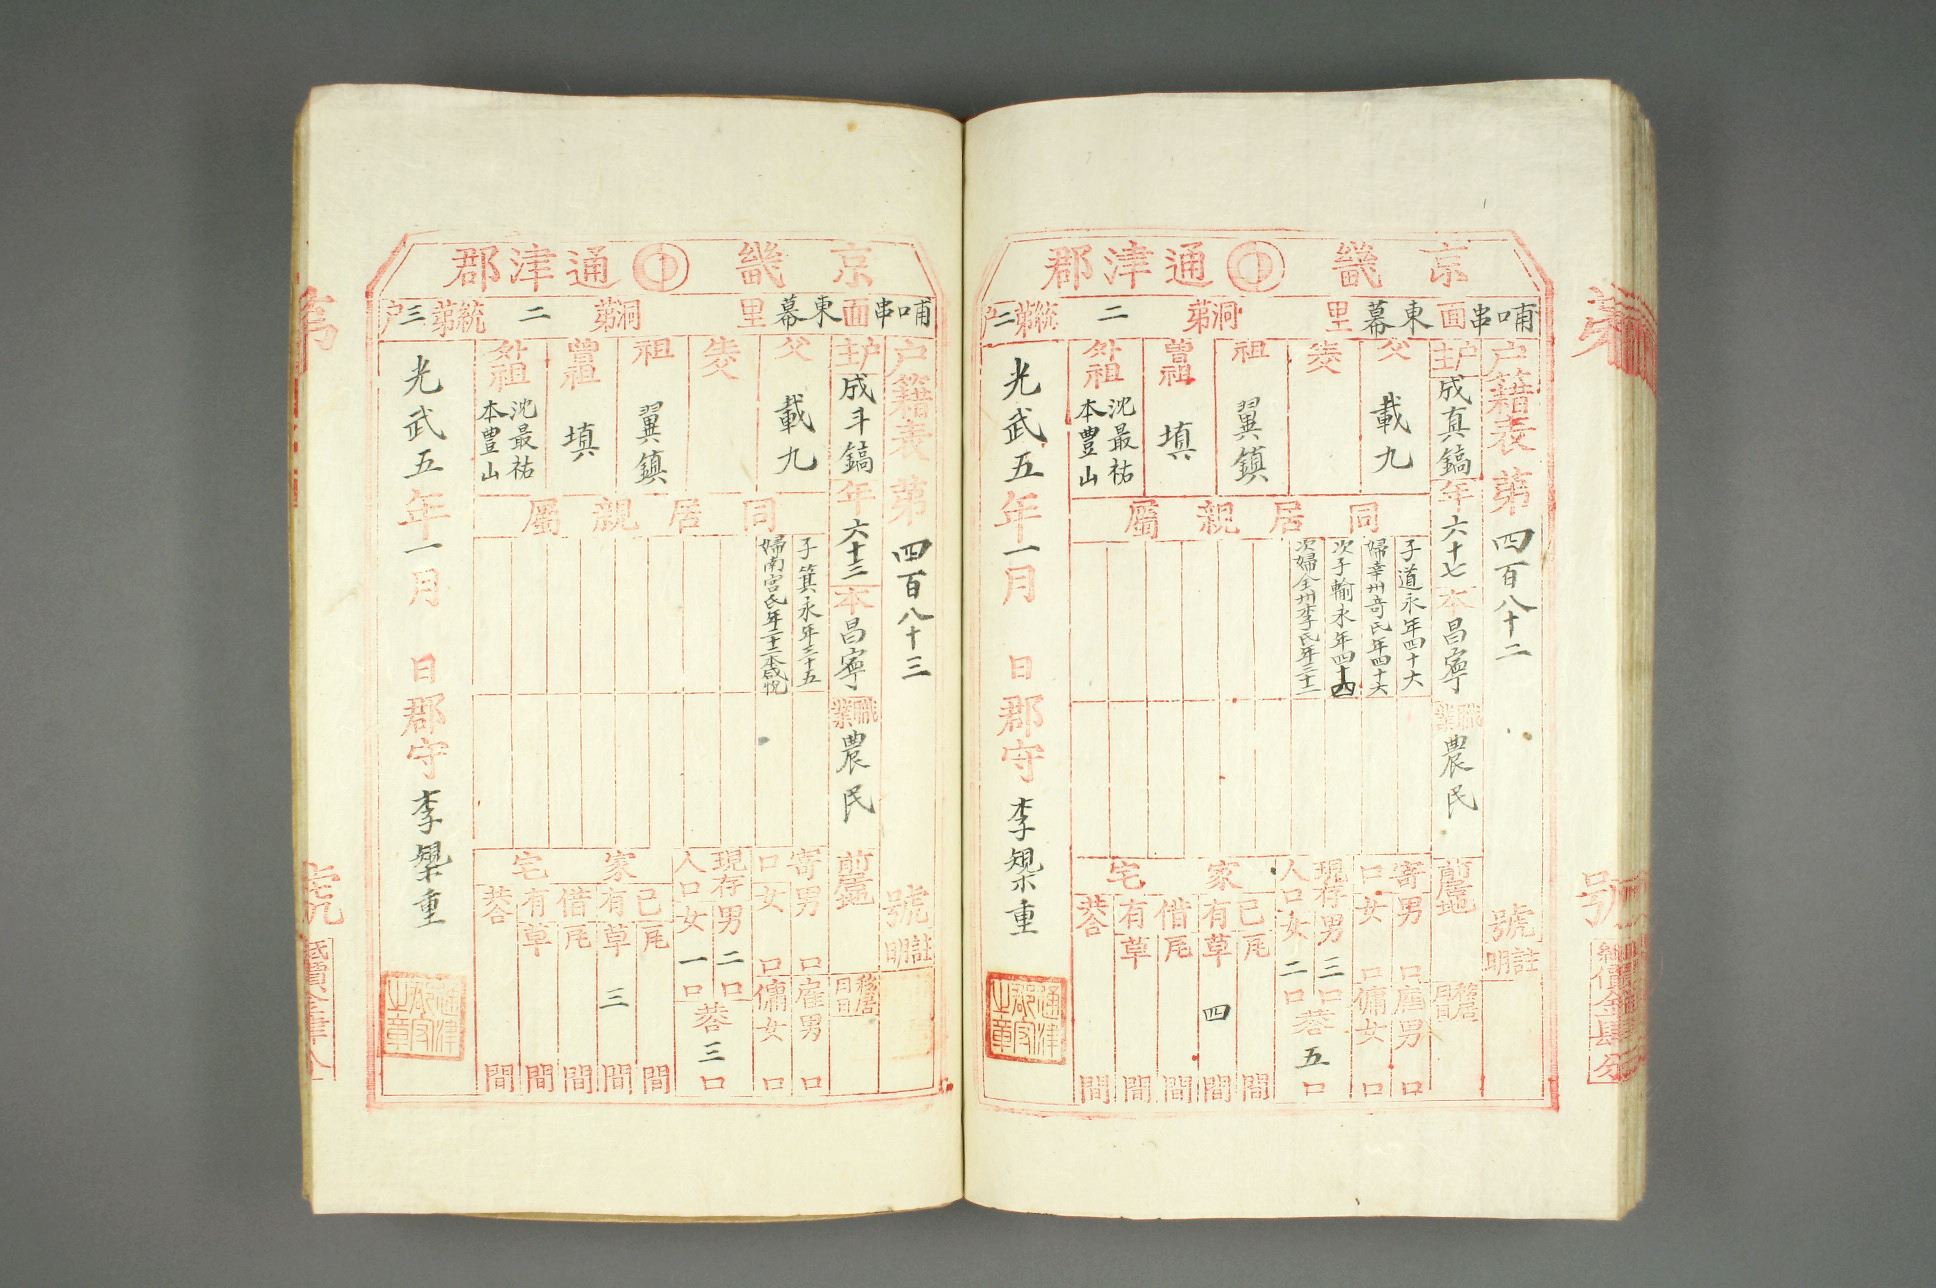 京畿 通津郡
哺串面東幕里 洞第二統第二户
户籍表第四百八十二號
户主成真鎬年六十七本昌寧職業農民前居地
註明
移居月日
父載九
生父
祖翼鎮
曾祖塡
外祖沈最祐本豊山
同居親屬
子道永年四十六
婦幸州奇氏年四十六
次子輸永年四十四
次婦全州李氏年三十二
寄口男口女口
雇男口傭女口
現存人口男三口女二口
共五口
家宅
己有瓦間
草四間
借有瓦間
草間
共間
光武五年一月 日郡守李榘重
通津郡守之章
京畿 通津郡
哺串面東幕里 洞第二統第三户
户籍表第四百八十三號
户主成斗鎬年六十三本昌寧職業農民前居地
註明
移居月日
父載九
生父
祖翼鎮
曾祖塡
外祖沈最祐本豊山
同居親屬
子箕永年三十五
婦南宮氏年三十二本咸悅
寄口男口女口
雇男口傭女口
現存人口男二口女一口
共三口
家宅
己有瓦間
草三間
借有瓦間
草間
共間
光武五年一月 日郡守李榘重
通津郡守之章
第
號